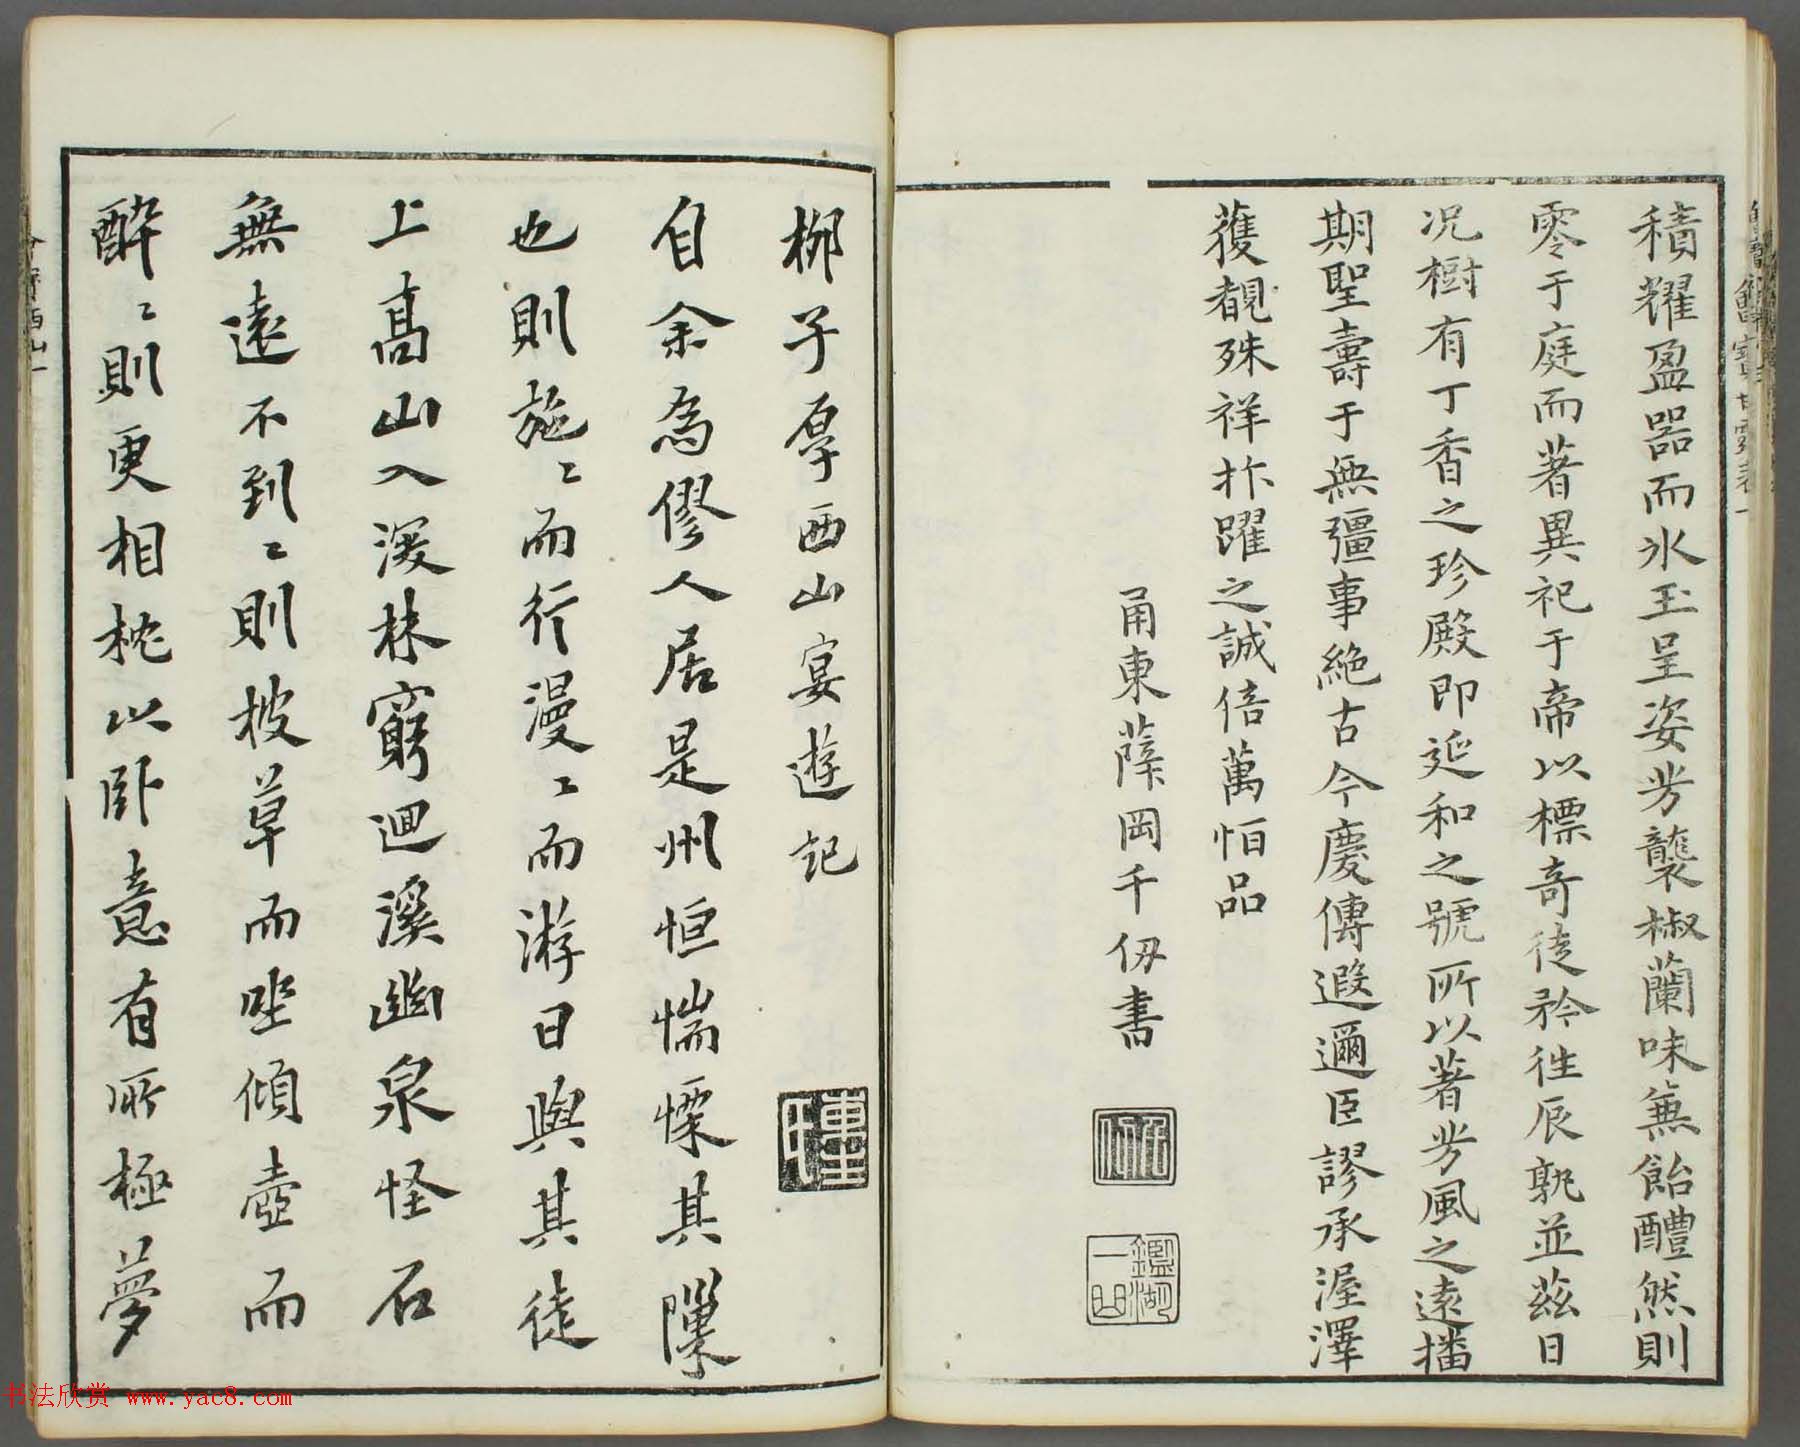 積耀盈器而氷玉呈姿芳襲椒蘭味無飴醴然則
零于庭而著異祀于帝以標奇徒矜往辰孰並茲日
况樹有丁香之珍殿即延和之號所以著芳風之遠播
期聖壽于無彊事絶古今慶傳遐邇臣謬承渥澤
獲覩殊祥抃躍之誠倍萬恒品
甬東薩岡千仭書
鑑湖一曲
柳子厚西山宴遊記
自余為僇人居是州恒惴慄其隟
也則施〻而行漫〻而游日與其徒
上高山入深林窮迴溪幽泉怪石
無遠不到〻則披草而坐傾壺而
醉〻則更相枕以卧意有所極夢
书法欣赏 www.yac8.com